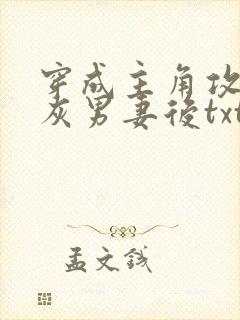 穿成主角攻
灰男妻後txt
孟文钱